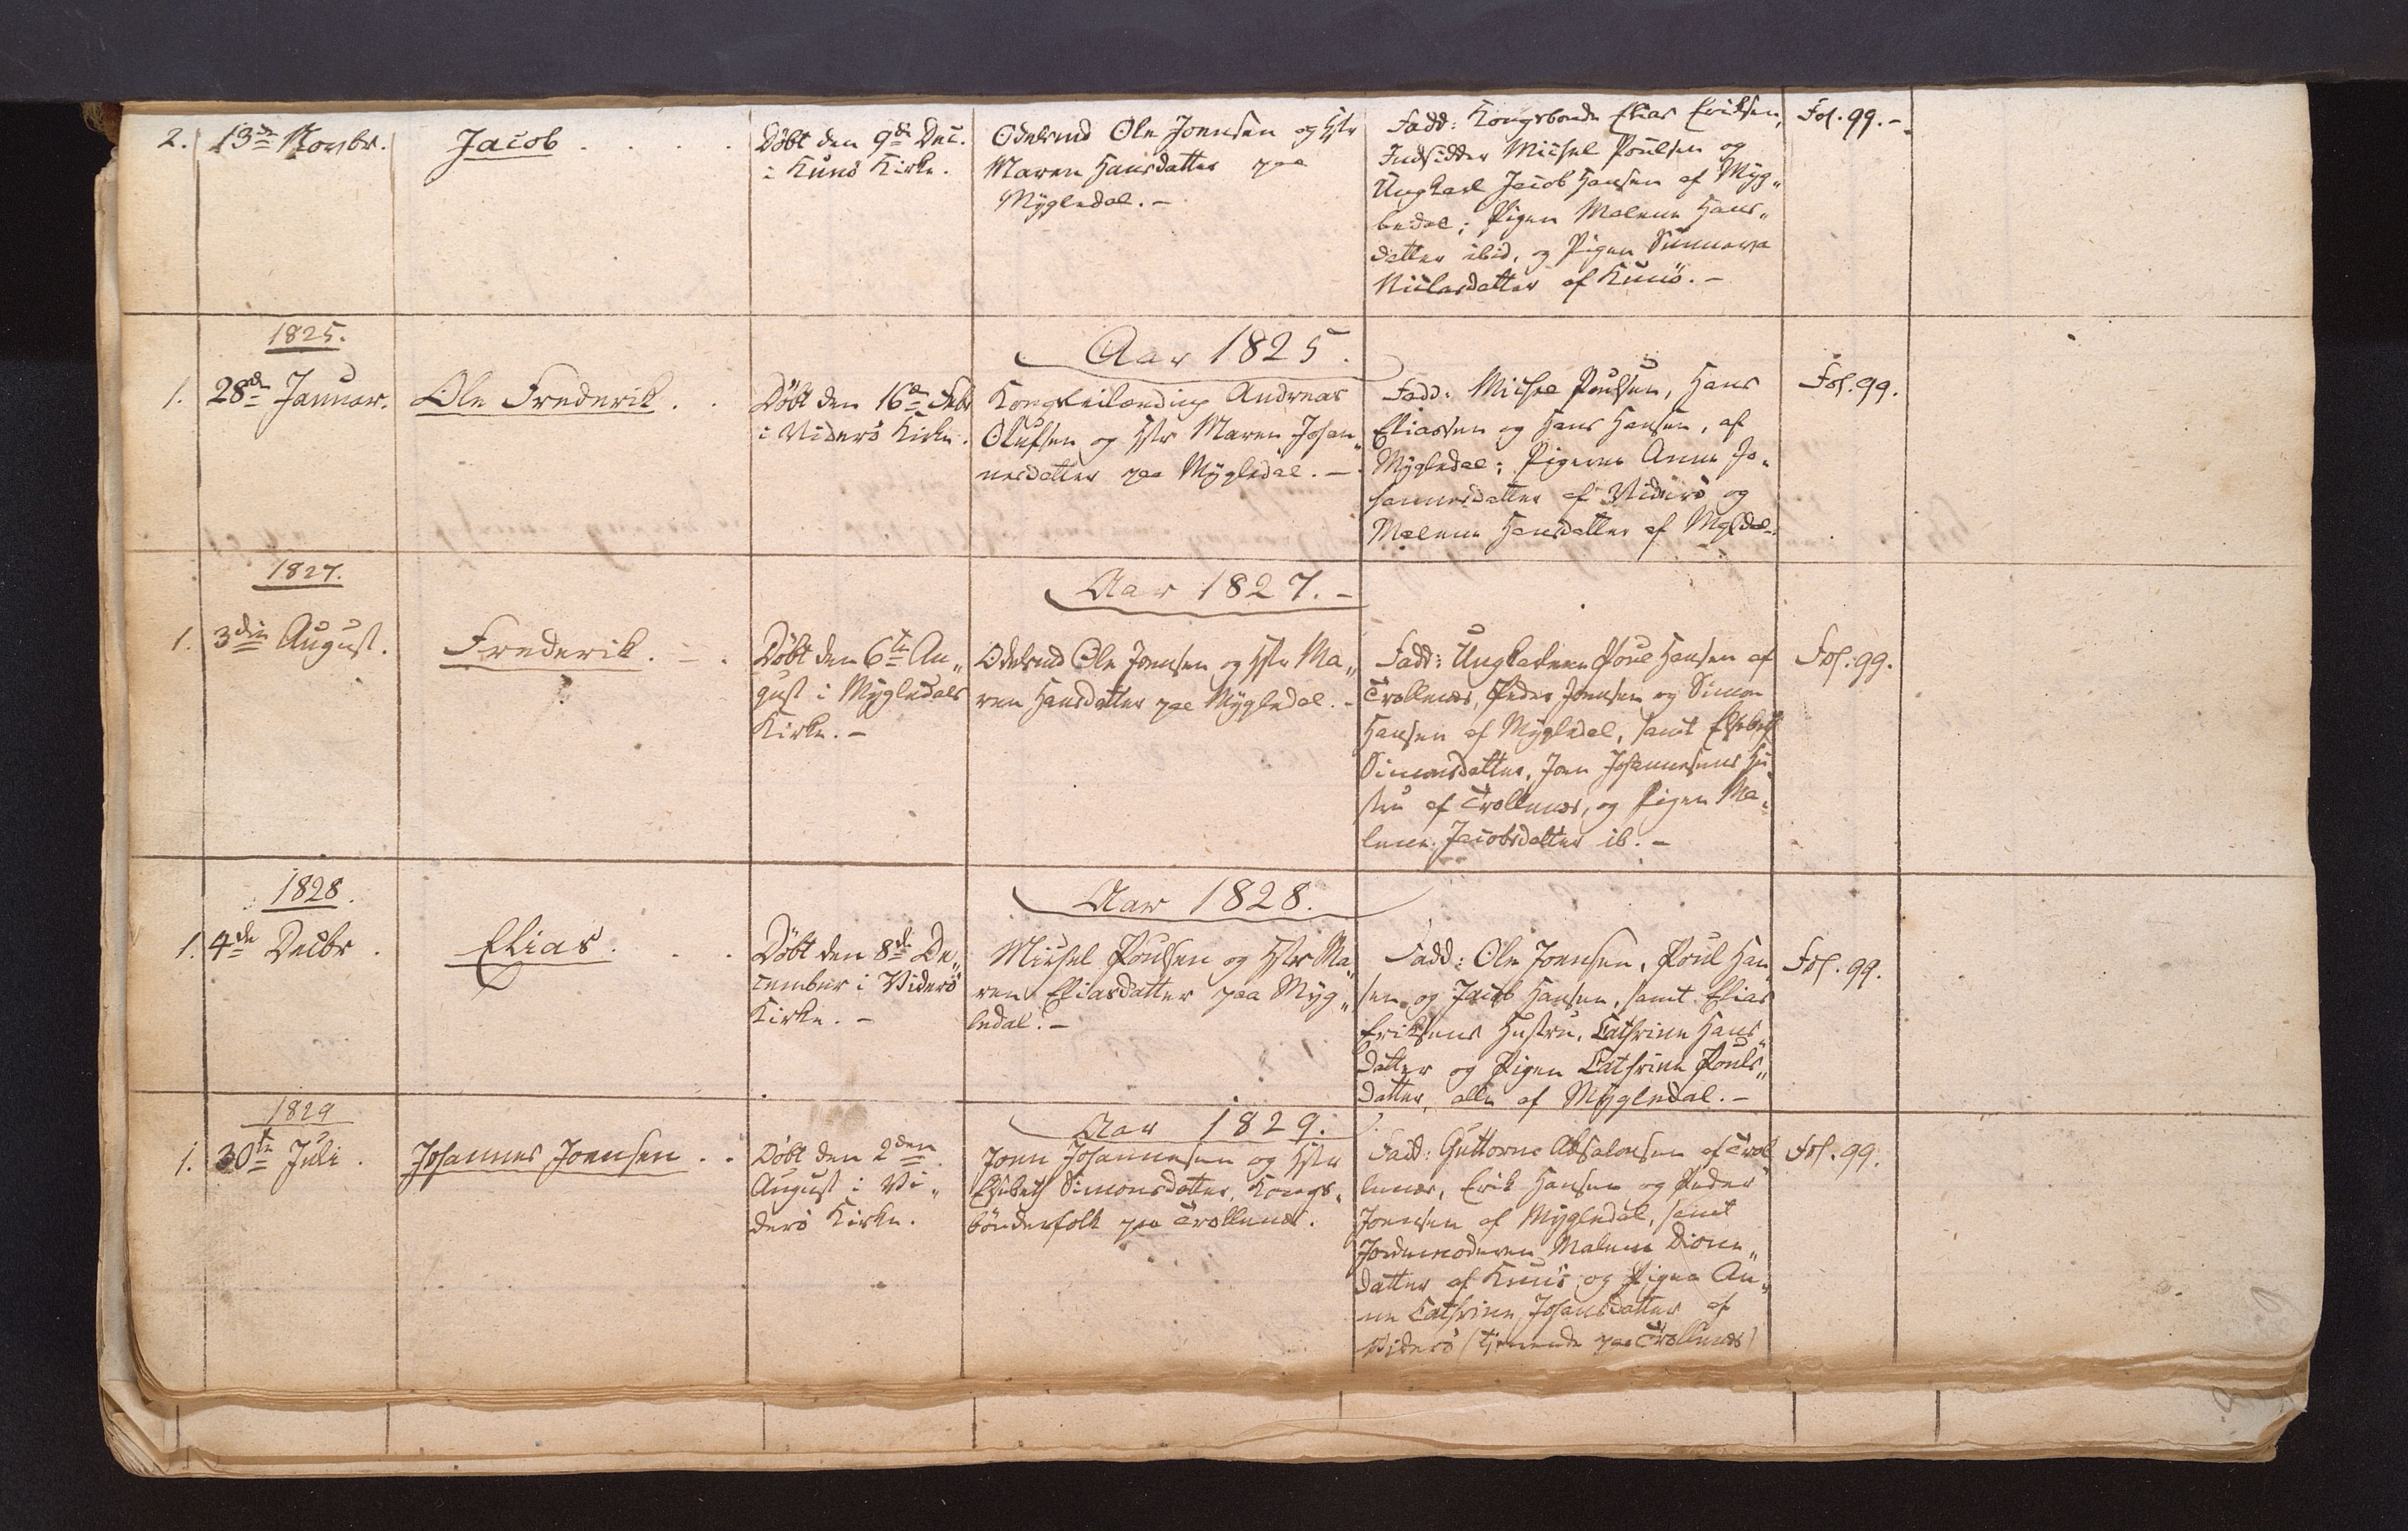 2. 13de Novbr. Jacob . . . .
Døbt den 9de Dec.
i Kunø Kirke.
Odelsmd Ole Joensen og Hstr
Maren Hansdatter paa
Mÿgledal. –
Fadd: Kongsbonde Elias Eriksen,
Indsidder Michel Poulsen og
Ungkarl Jacob Hansen af Mÿg„
ledal; Pigen Malene Hans„
datter ibid, og Pigen Sunneva
Niclasdatter af Kunö. –
Fol. 99. –
1825.
Aar 1825.
1. 28de Januar. Ole Frederik . .
Døbt den 16de Febr
i Viderö Kirke.
Andreas
Olufsen og Hstr Maren Johan„
nesdatter paa Mÿgledal. –
Fadd: Michel Poulsen, Hans
Eliassen og Hans Hansen, af
Mÿgledal; Pigerne Anne Jo„
hannesdatter af Viderö og
Malene Hansdatter af
Fol. 99.
1827.
Aar 1827. –
1. 3die August. Frederik. – .
Døbt den 6te Au„
gust i Mÿgledals
Kirke. –
Odelsmd Ole Joensen og Hstr Ma„
ren Hansdatter paa Mÿgledal. –
Fadd: Ungkarlene Poul Hansen af
Trollenæs, Peder Joensen og Simon
Hansen af Mÿgledal, samt Elsebeth
Simonsdatter, Joen Johannesens Hu„
stru af Trollenæs, og Pigen Ma„
lene Jacobsdatter ib. –
Fol. 99.
1828.
Aar 1828.
1. 4de Decbr . Elias. . .
Döbt den 8de De„
cember i Viderö
Kirke. –
Michel Poulsen og Hstr Ma„
ren Eliasdatter paa Mÿg„
ledal. –
Fadd: Ole Joensen, Poul Han„
sen og Jacob Hansen, samt Elias
Eriksens Hustru, Cathrine Hans„
datter og Pigen Cathrine Pouls„
datter, alle af Mÿgledal. –
Fol. 99.
1829
Aar 1829.
1. 30te Juli . Johannes Joensen . .
Døbt den 2den
August i Vi„
derö Kirke.
Joen Johannesen og Hstr
Elsebeth Simonsdatter, Kongs„
bönderfolk paa Trollenæs.
Fadd: Guttorm Absalonsen af Trol
lenæs, Erik Hansen og Peder
Joensen af Mÿgledal, samt
Jordemoderen Malene
datter af Kunö og Pigen An„
ne Cathrine Johansdatter af
Viderö (tjenende paa Trollenæs)
Fol. 99.